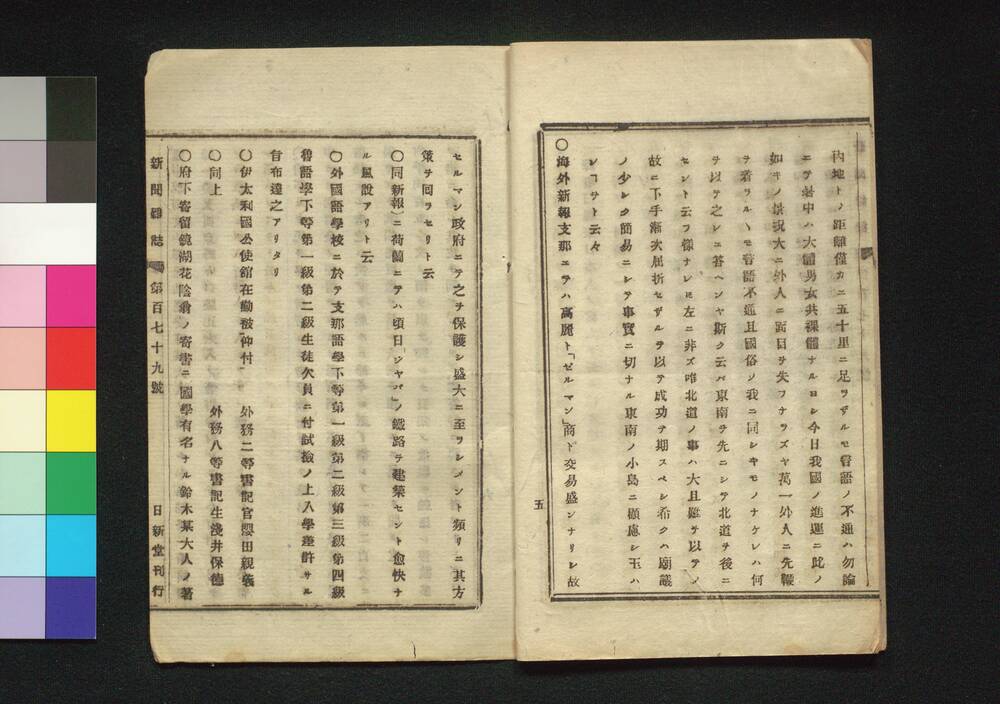 内地ト丿距離僅カニ五十里ニ足ラザルモ言語ノ不通ハ勿論
ニテ老中ハ大體男女共裸體ナルヨシ今日我國ノ進運ニ此ノ
如キノ景況大ニ外人ニ面目ヲ失フナラズヤ萬一外人ニ先鞭
ヲ着ラルヽモ言語不通且國俗ノ我ニ同シキモノナケレハ何
ヲ以テ之レニ答ヘンヤ斯ク云バ東南ヲ先ニシテ北道ヲ後ニ
セント云フ樣ナレ𪜈左ニ非ズ唯北道ノ事ハ大且難ヲ以テノ
故ニ下手漸次屈折セザルヲ以テ成功ヲ期スベシ希クハ廟議
ノ少シク簡易ニシテ事實ニ切ナル東南ノ小島ニ顧慮シ玉ハ
レヿヲト云々
〇海外新報支那ニテハ高麗ト「ゼルマン」商ト交易盛ンナリシ故
五
セルマン政府ニテ之ヲ保護シ盛大ニ至ラシメント頻リニ其方
策ヲ回ラセリト云
〇同新報ニ荷蘭ニテハ頃日「ジヤバ」ノ鐵路ヲ建築セント愈快ナ
ル風說アリト云
〇外國語學校ニ於テ支那語學下等第一級第二級第三級第四級
魯語學下等第一級第二級生徒欠員ニ付試撿ノ上入學差許サル
旨布達之アリタリ
〇伊太利國公使館在勤被仰付 外務二等書記官櫻田親義
〇同上 外務八等書記生淺井保德
〇府下寄留鏡湖花陰翁ノ寄書ニ國學有名ナル鈴木某大人ノ著
新聞雜誌 第百七十九號 日新堂刊行